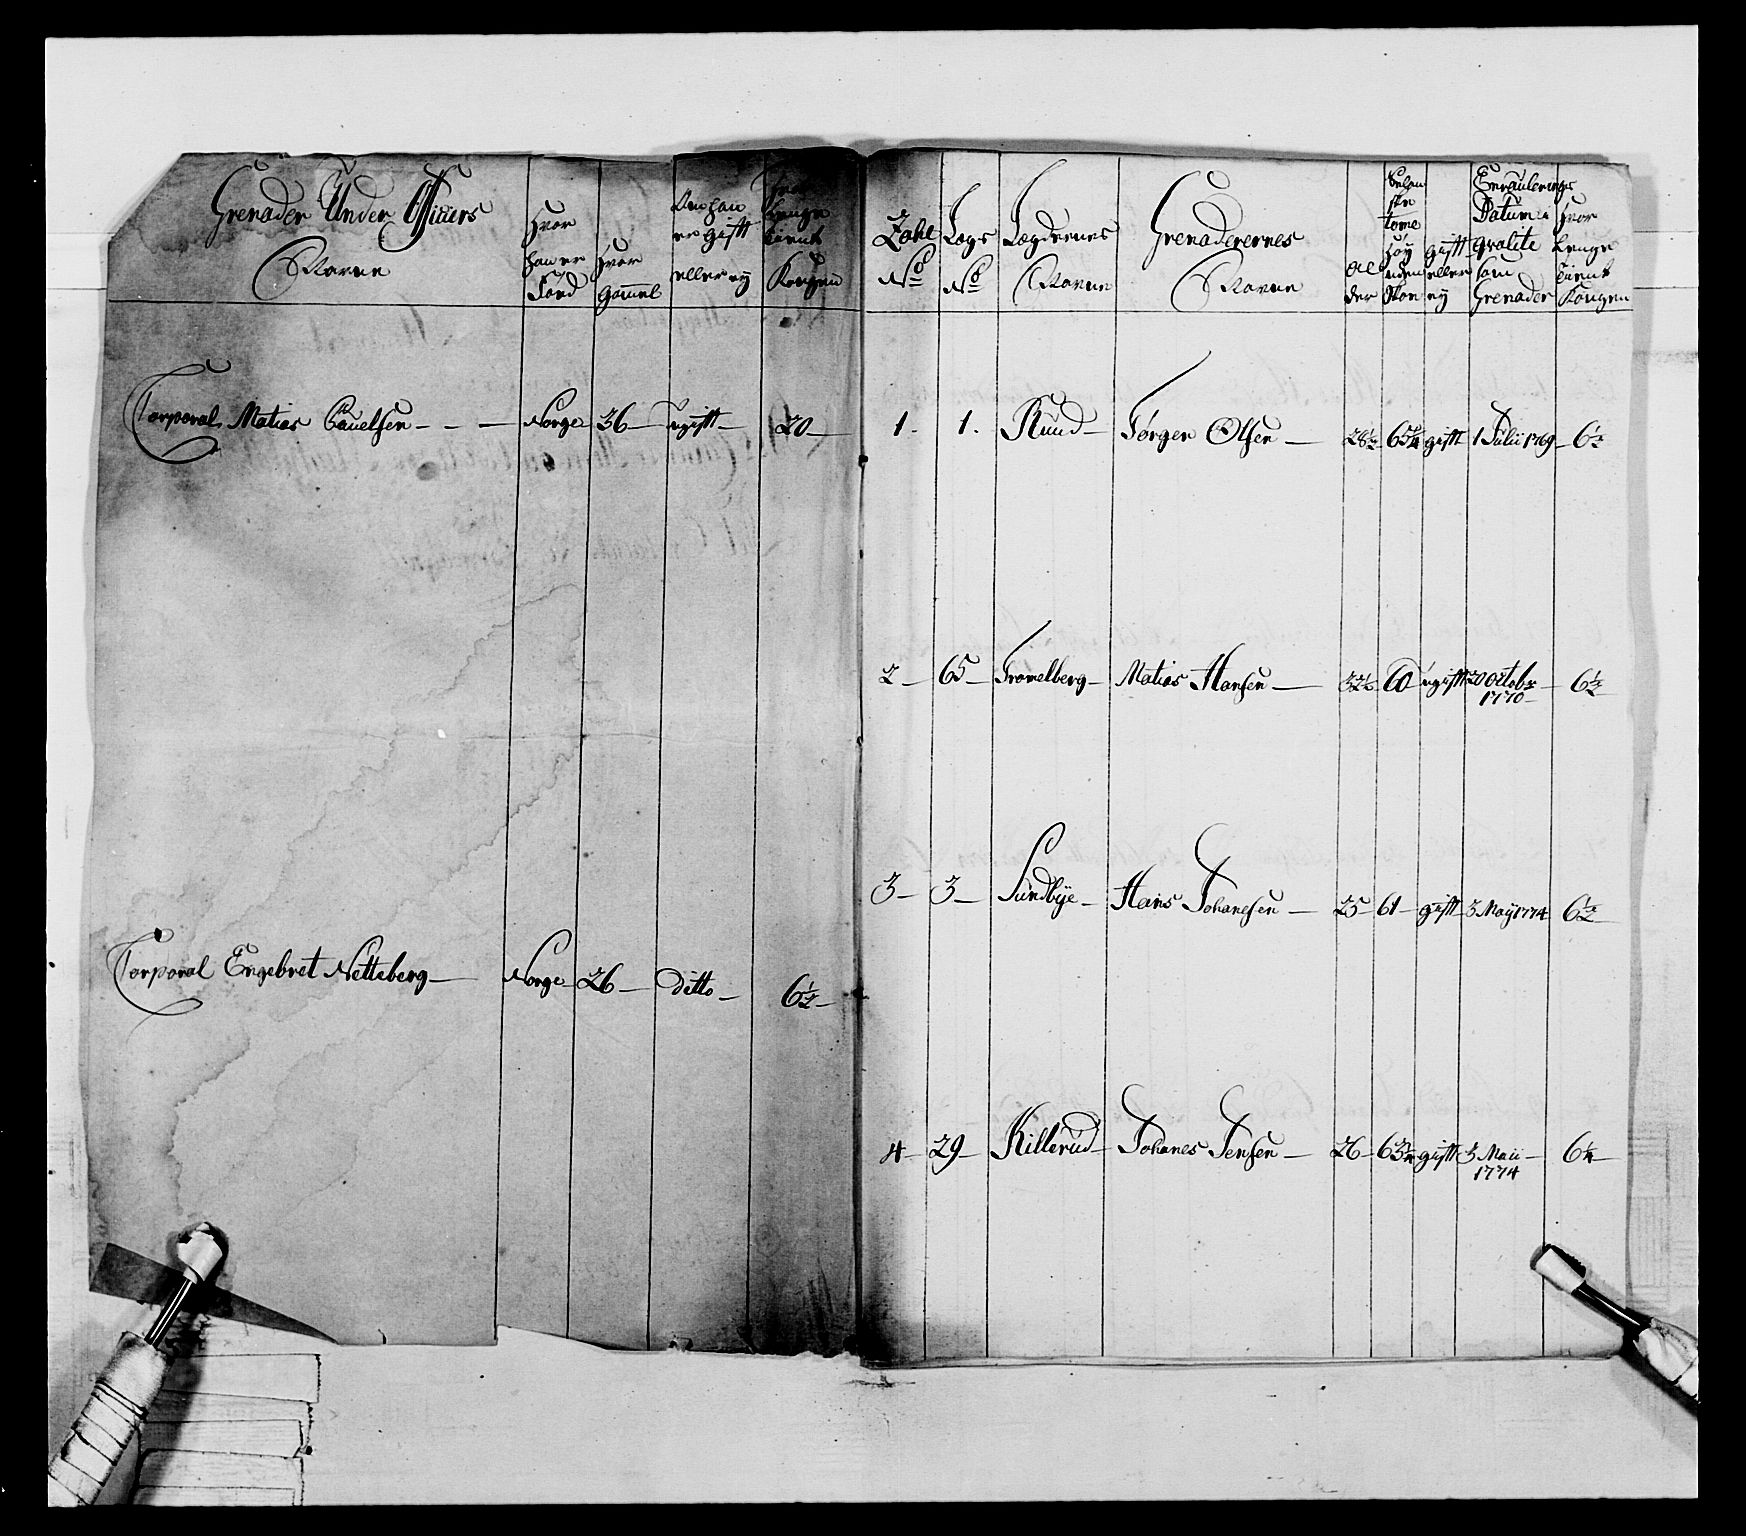 Grenader Under Officiers
Navne
Hvor
han er
Fød
Hvor
Gamel
Om han
er gift
eller ey
Hvor
lenge
tient
Kongen
Corporal Matias Pauelsen - - - Norge 36 - ugift - 20 -
Corporal Engebret Netteberg - Norge 26 - ditto - 6½ -
Zahl
No
Legs
No
Legdernes
Navne
Grenaderernes
Navne
Al
der
tome
Høy
uden
Skoe
gift
eller
ey
Enroulerings
Datum i
qvalite
som
Grenader
Hvor
lenge
tient
Kongen
1. 1. Ruud - Jørgen Olsen - 28½ 65¼ gift 1 Julii 1769 - 6½
2 - 65 - Tromelberg - Matias Hansen - 32½ 60 - ugift 20 Octobr - 6½
1770 -
3 - 3 - Sundbÿe - Hans Johanesen - 25 - 61 - gift - 3 Maÿ 1774 6½
4 - 29 - Killerud - Johanes Jensen - 26 - 63¾ gift - 3 Maii - 6¼ -
1774